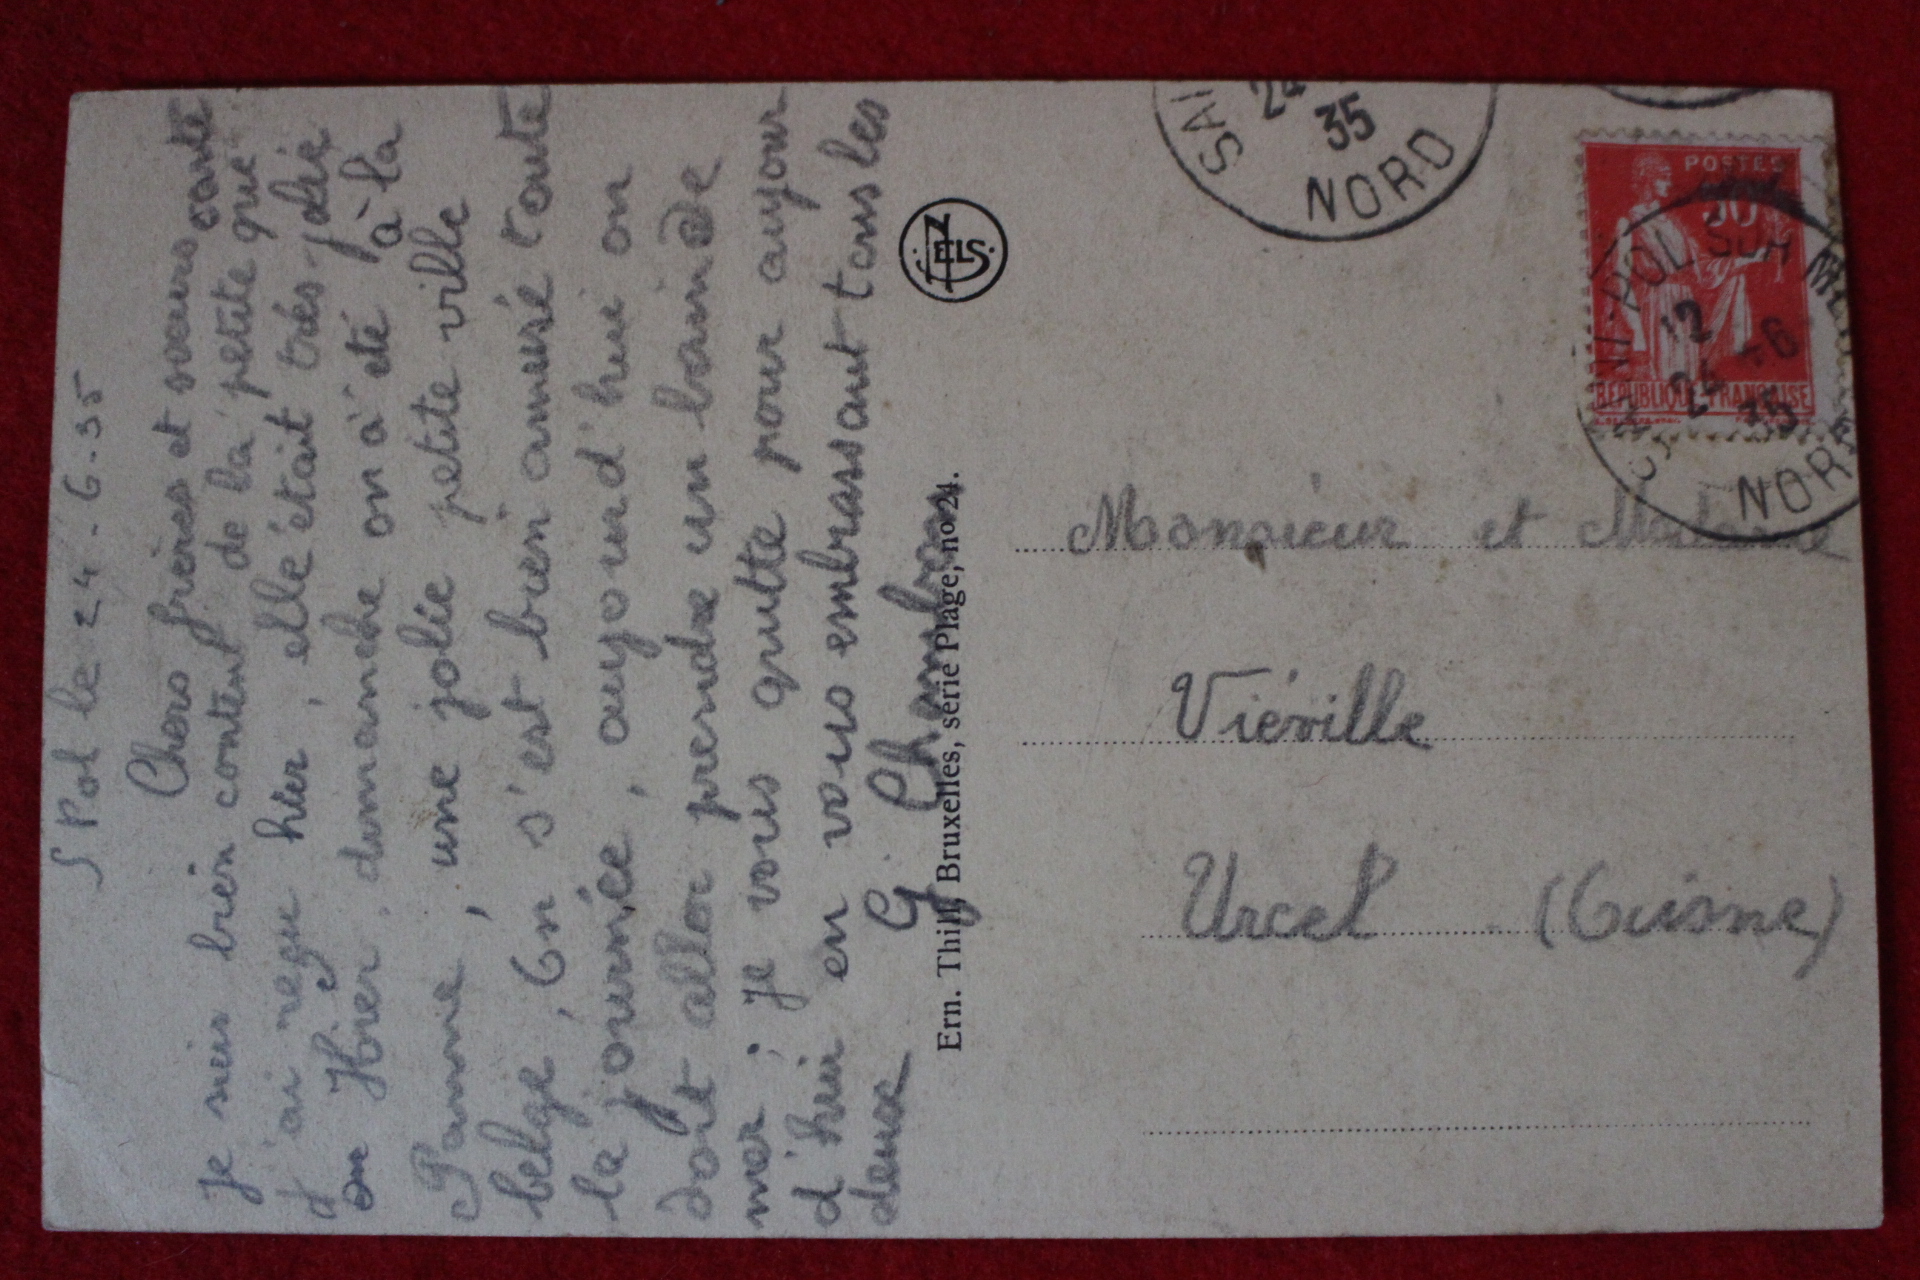 S Pol le 24-6-35
Chers frères et sœurs
Je suis bien content de la petite carte que
j'ai reçu hier, elle était très jolie
Hier, dimanche on à été à la
Panne, une jolie petite ville
belge, On s'est bien amusé toute
la journée, aujourd'hui on
doit aller prendre un bain de
mer; je vous quitte pour aujour
d'hui en vous embrassant tous les
deux G.
Ern. Thill, Bruxelles, série Plage, no 24.
NELS
SAI
24
35
NORD
POSTES
50
RÉPUBLIQUE FRANÇAISE
POL SUR MER
12
24-6
35
NORD
Monsieur et Madame
Viéville
Urcel (Aisne)